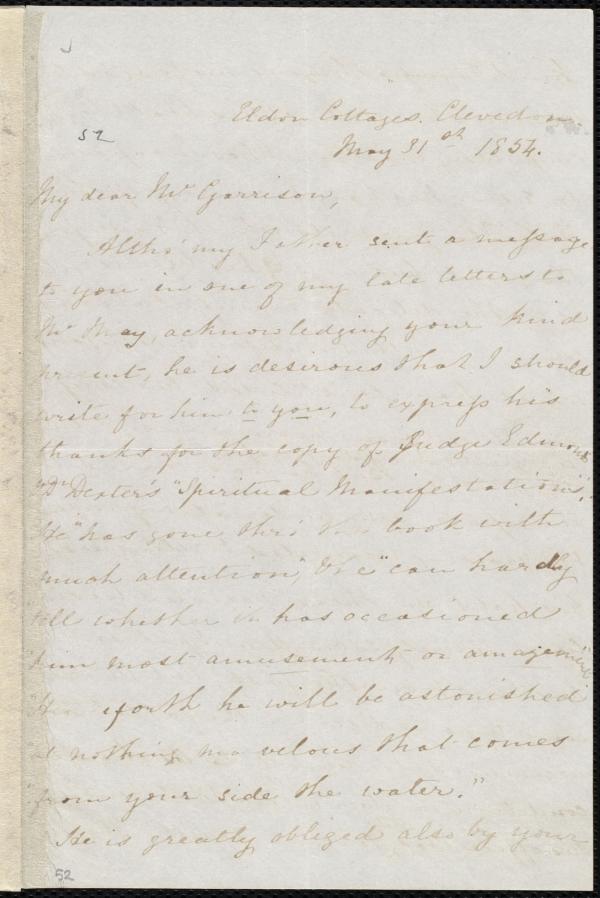 52
Eldon Cottages. Clevedon.
May 31st 1854.
My dear Mr Garrison,
Altho' my Father sent a message
to you in one of my late letters to
Mr May, acknowledging your kind
present, he is desirous that I should
write for him to you, to express his
thanks for the copy of Judge Edmonds
& Dr Dexter's "Spiritual Manifestations".
He "has gone thro' the book with
much attention", & he "can hardly
tell whether it has occasioned
him most amusement or amazement"
"Henceforth he will be astonished
at nothing marvelous that comes
from your side the water."
He is greatly obliged also by your
52